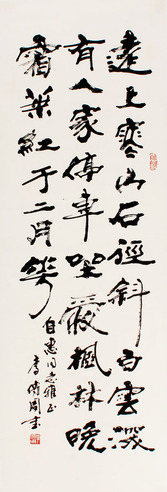 遠上寒山石徑斜白雲深
有人家停車坐愛楓林晚
霜葉紅于二月花
同志雅正